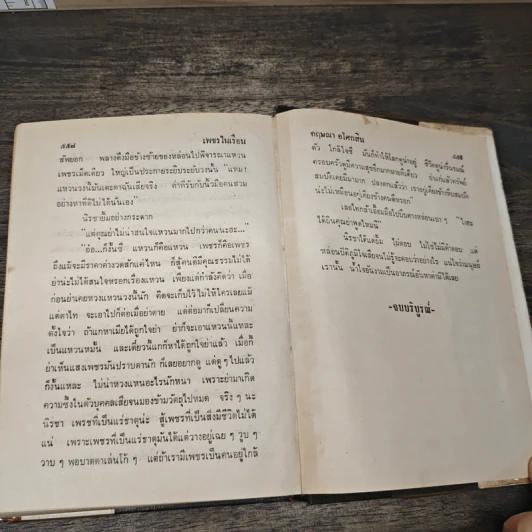 ๕๕๘
เพชรในเรือน
สัพยอก พลางดึงมือข้างซ้ายของหล่อนไปพิจารณาแหวน
เพชรเม็ดเดี่ยว ใหญ่เป็นประกายระยิบระยับวงนั้น "แหม!
แหวนวงนี้มันเตะตาฉันเสียจริง ค่าที่รับกับนิ้วมือคนสวม
อย่างหาที่ติไม่ได้นั่นเอง"
นิรชายิ้มอย่างกระดาก
"แต่คุณย่าไม่น่าสนใจแหวนมากไปกว่าคนนะฮะ..."
"อ้อ...ก็งั้นซี แหวนก็คือแหวน เพชรก็คือเพชร
ถึงแม้จะมีราคาค่างวดสักแค่ไหน ก็สู้คนดีมีคุณธรรมไม่ได้
ย่าน่ะไม่ได้สนใจหรอกเรื่องแหวน เพียงแต่กำลังคิดว่า เมื่อ
ก่อนย่าเคยหวงแหวนวงนี้นัก คิดจะเก็บไว้ไม่ให้ใครเลยแม้
แต่ตาไท จะเอาไปก็ต่อเมื่อย่าตาย แต่ต่อมาก็เปลี่ยนความ
ตั้งใจว่า ถ้าแกหาเมียได้ถูกใจย่า ย่าก็จะเอาแหวนนี้แหละ
เป็นแหวนหมั้น และเดี๋ยวนี้แกก็หาได้ถูกใจย่าแล้ว เมื่อกี้
ย่าเห็นแสงเพชรมันปราบตานัก ก็เลยอยากดู แต่ดู ๆ ไปแล้ว
ก็งั้นแหละ ไม่น่าหวงแหนอะไรนักหนา เพราะย่ามาเกิด
ความซึ้งในตัวบุคคลเสียจนมองข้ามวัตถุไปหมด จริง ๆ นะ
นิรชา เพชรที่เป็นแร่ธาตุน่ะ สู้เพชรที่เป็นสิ่งมีชีวิตไม่ได้
แน่ เพราะเพชรที่เป็นแร่ธาตุมันได้แต่วางอยู่เฉย ๆ วูบ ๆ
วาบ ๆ พอบาดตาเล่นโก้ ๆ แต่ถ้าเรามีเพชรเป็นคนอยู่ใกล้
กฤษณา อโศกสิน
๕๕๙
ตัว ใกล้ใจซี มันก็ทำให้โลกน่าอยู่ ชีวิตอยู่รื่นรมณ์
ครอบครัวดูมีความสุขอีกมากมายทีเดียว ย่าแก่แล้วทรัพย์
สมบัติเคยมีมามาก ปลงตกแล้วว่า เราอยู่เคียงข้างกับสมบัติ
น่ะไม่เหมือนอยู่เคียงข้างคนดีหรอก"
เลอไทกลั้นยิ้มมือไปบีบคางหล่อนเบา ๆ "ไงฮะ
ได้ยินคุณย่าพูดไหมนี่"
นิรชาได้แต่ยิ้ม ไม่ตอบ ไม่ใช่ไม่มีคำตอบ แต่
หล่อนปิติภูมิใจเสียจนไม่รู้ว่าจะตอบว่าอย่างไร แน่ใจว่ามนุษย์
เรานั้น น้ำใจอันงามเป็นอาภรณ์อันหาค่ามิได้เลย
-จบบริบูรณ์-